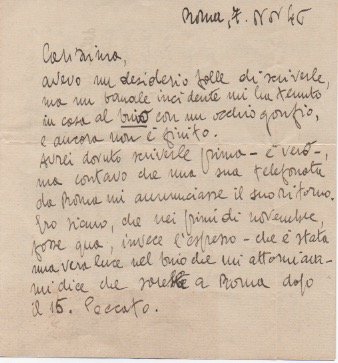 Roma, 7. Nov 46
Carissima,
avevo un desiderio folle di scriverle,
ma un banale incidente mi ha tenuto
in casa al buio con un occhio gonfio,
e ancora non è finito.
Avrei dovuto scriverle prima – è vero –,
ma contavo che una sua telefonata
da Roma mi annunciasse il suo ritorno.
Ero sicuro, che nei primi di novembre,
fosse qua, invece l'espresso – che è stata
una vera luce nel buio che mi attornia –
mi dice che sarebbe a Roma dopo
il 15. Peccato.